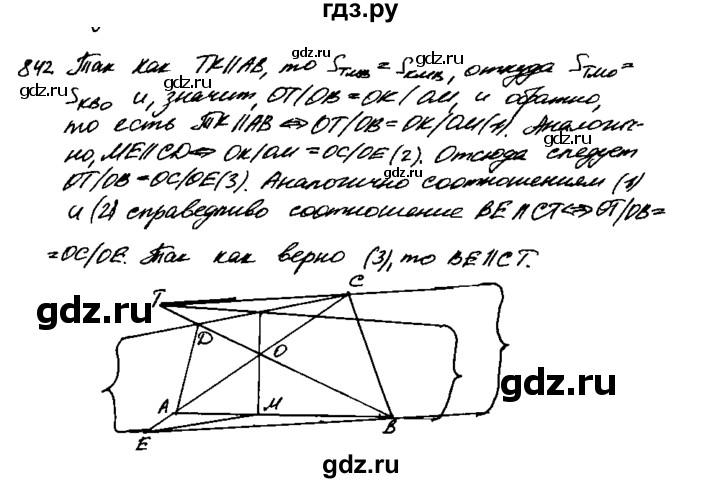 гдз.ру
842. Так как TK∥AB, то S_TMB = S_KMB, откуда S_TMO =
S_KBO и, значит, OT/OB = OK/OM, и обратно,
то есть TK∥AB ⇔ OT/OB = OK/OM (1). Аналогич-
но, ME∥CD ⇔ OK/OM = OC/OE (2). Отсюда следует
OT/OB = OC/OE (3). Аналогично соотношениям (1)
и (2) справедливо соотношение BE∥CT ⇔ OT/OB =
= OC/OE. Так как верно (3), то BE∥CT.
gdz.ru
gdz.ru
gdz.ru
gdz.ru
gdz.ru
gdz.ru
gdz.ru
gdz.ru
T
C
gdz.ru
D
O
gdz.ru
A
M
B
E
gdz.ru
gdz.ru